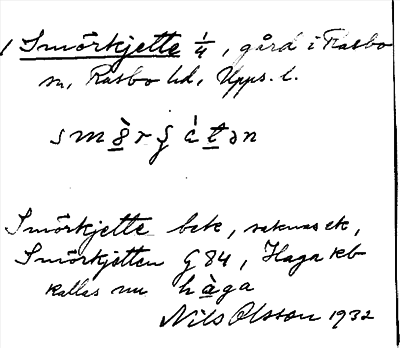 Smörkjette 1/4, gård i Rasbo
sn, Rasbo hd, Upps. l.
smö̀rʃátən
Smörkjette bek, saknas ek,
Smörkjetten G 84, Haga kb
kallas nu hàga
Nils Olsson 1932